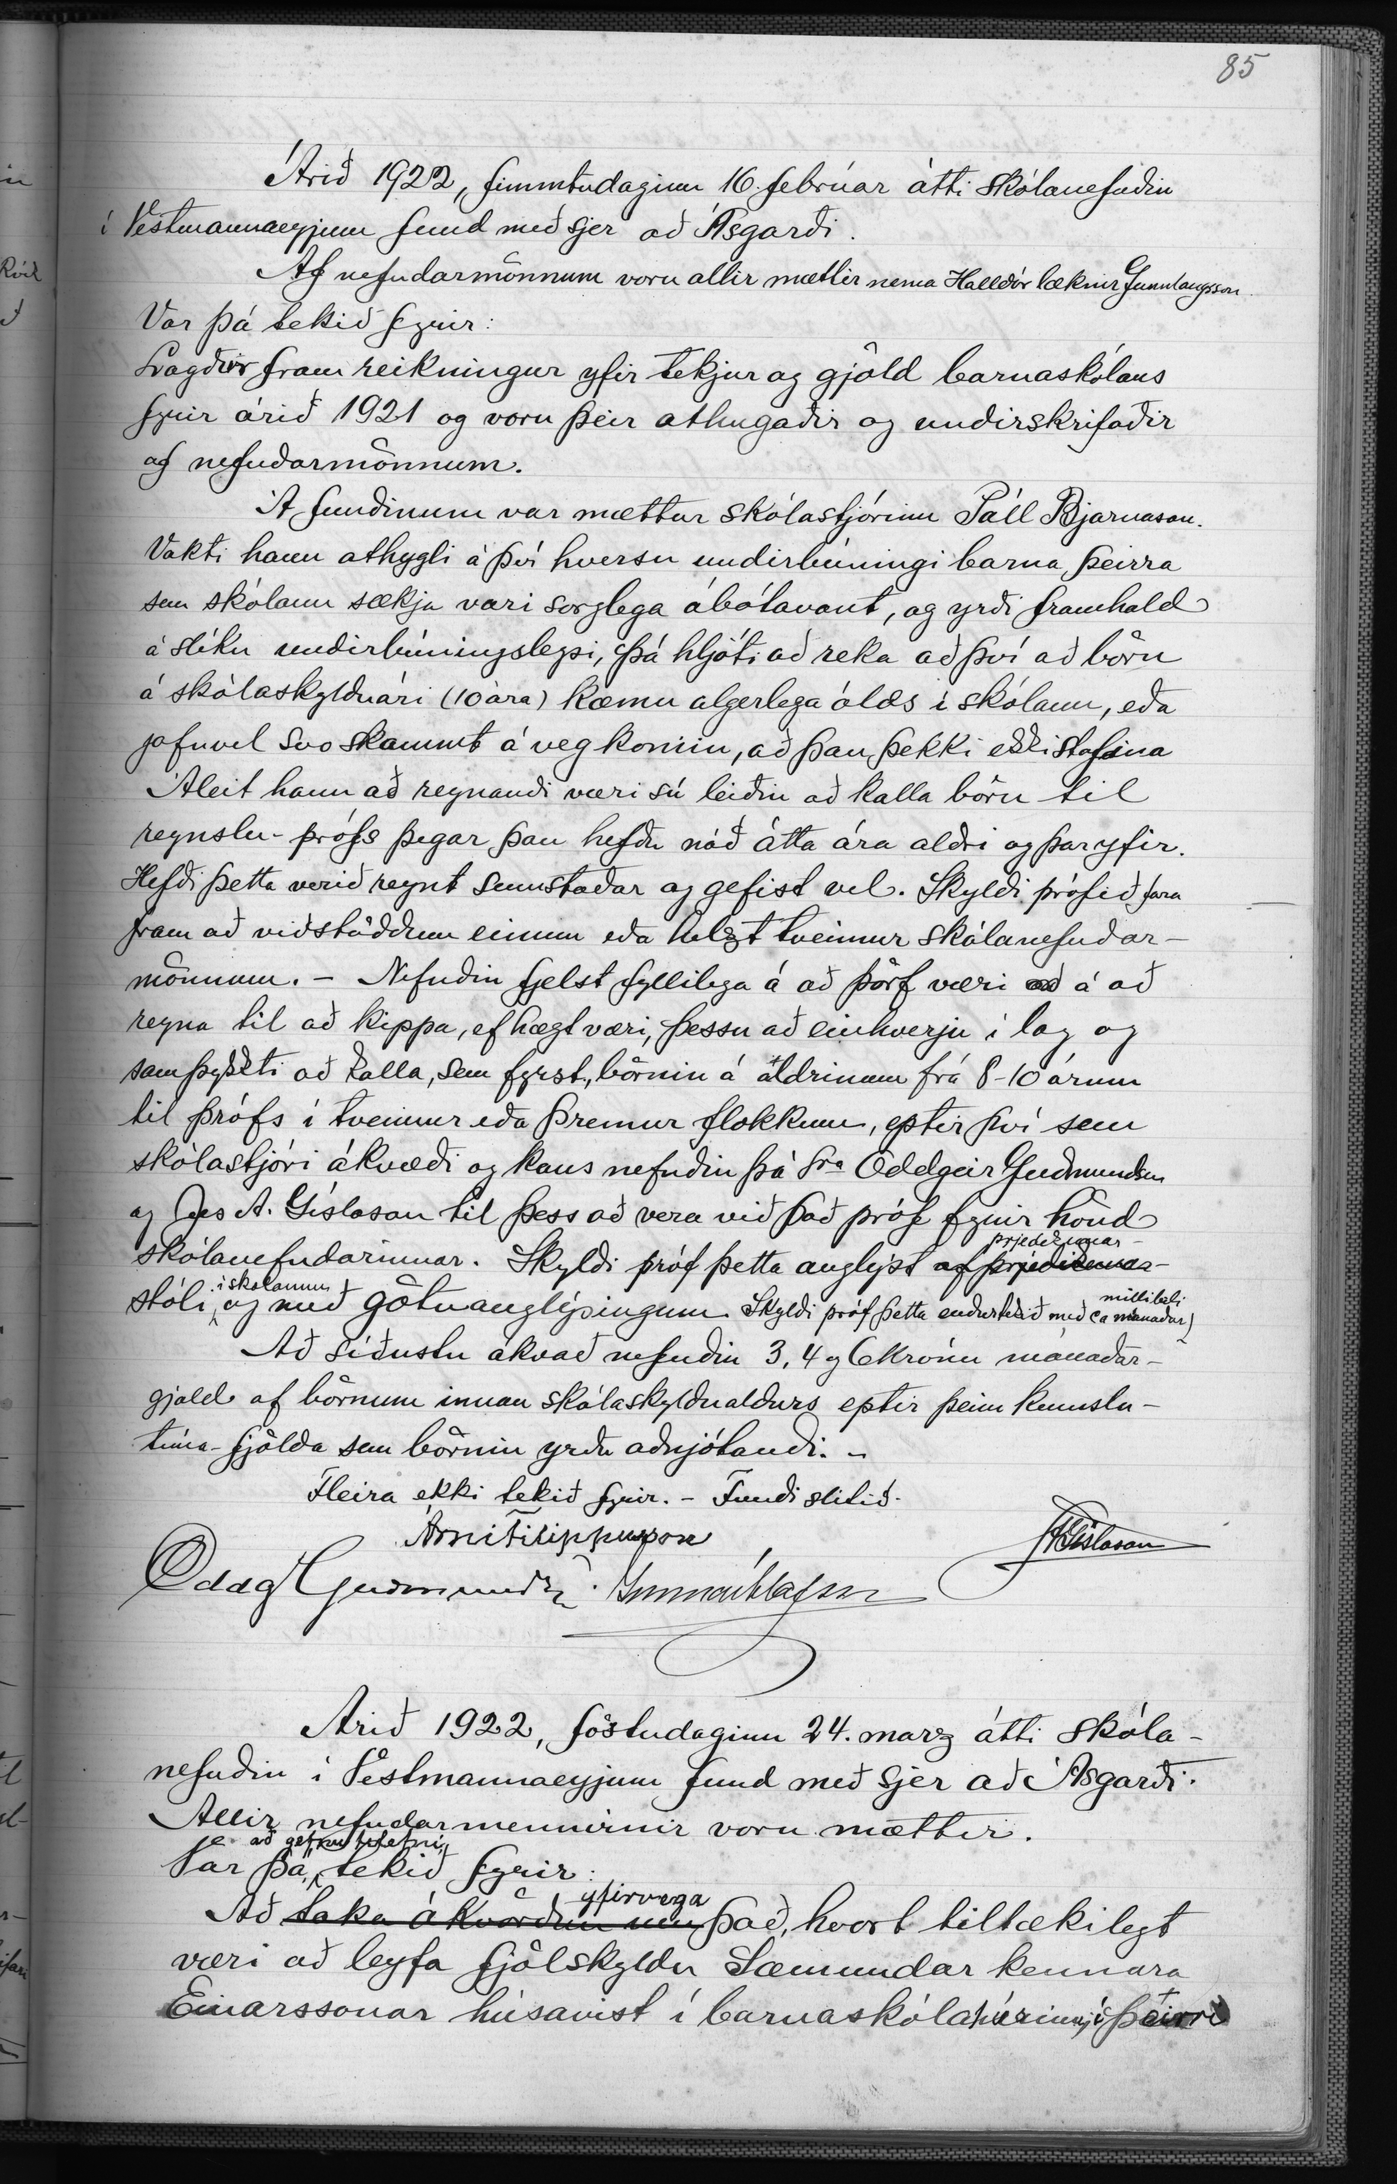 85
Árið 1922, fimmtudaginn 16. febrúar átti skólanefndin
í Vestmannaeyjum fund með sjer að Ásgarði.
Af nefndarmönnum voru allir mættir nema Halldór læknir Gunnlaugsson.
Var þá tekið fyrir:
Lagðir fram reikningur yfir tekjur og gjöld barnaskólans
fyrir árið 1921 og voru þeir athugaðir og undirskrifaðir
af nefndarmönnum.
Á fundinum var mættur skólastjórinn Páll Bjarnason.
Vakti hann athygli á því hversu undirbúningi barna þeirra
sem skólann sækja væri sorglega ábótavant, og yrði framhald
á slíku undirbúningsleysi, þá hljóti að reka að því að börn
á skólaskylduári (10 ára) kæmu algerlega ólæs í skólann, eða
jafnvel svo skammt á veg komin, að þau þekki ekki stafina
Áleit hann að reynandi væri sú leiðin að kalla börn til
reynslu-prófs þegar þau hefðu náð átta ára aldri og þar yfir.
Hefði þetta verið reynt sumstaðar og gefist vel. Skyldi prófið fara
fram að viðstöddum einum eða helzt tveimur skólanefndar-
mönnum. - Nefndin fjelst fyllilega á að þörf væri á að
reyna til að kippa, ef hægt væri, þessu að einhverju í lag og
samþykkti að kalla, sem fyrst, börnin á aldrinum frá 8-10 árum
til prófs í tveimur eða þremur flokkum, eptir því sem
skólastjóri ákvæði og kaus nefndin þá Sra Oddgeir Guðmundsen
og Jes A. Gíslason til þess að vera við það próf fyrir hönd
skólanefndarinnar. Skyldi próf þetta auglýst af prjedikunar- prjedikunar-
stóli, í skólanum og með götuauglýsingum. Skyldi próf þetta endurtekið með ca mánaðar millibili)
Að síðustu ákvað nefndin 3, 4 og 6 krónu mánaðar-
gjald af börnum innan skólaskyldualdurs eptir þeim kennslu-
tíma-fjölda sem börnin yrðu aðnjótandi. -
Fleira ekki tekið fyrir. - Fundi slitið.
Árni Filippusson
JAGíslason
Oddg Guðmundsen. Gunnar Ólafsson
Árið 1922, föstudaginn 24. marz átti skóla-
nefndin í Vestmannaeyjum fund með sjer að Ásgarði.
Allir nefndarmennirnir voru mættir.
Var þá, að gefnu tilefni, tekið fyrir:
Að taka ákvörðun um yfirvega það, hvort tiltækilegt
væri að leyfa fjölskyldu Sæmundar kennara
Einarssonar húsavist í barnaskólahúsinu, í þeirri